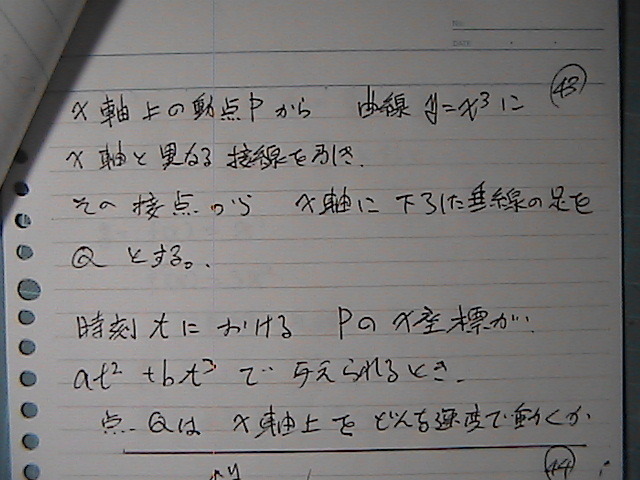 x軸上の動点Pから 曲線 y=x³に ㊸
x軸と異なる接線を引き.
その接点から x軸に下ろした垂線の足を
Qとする。
時刻tにおける Pのx座標が.
at²+bt³で与えられるとき.
点Qは x軸上をどんな速度で動くか
㊹
y